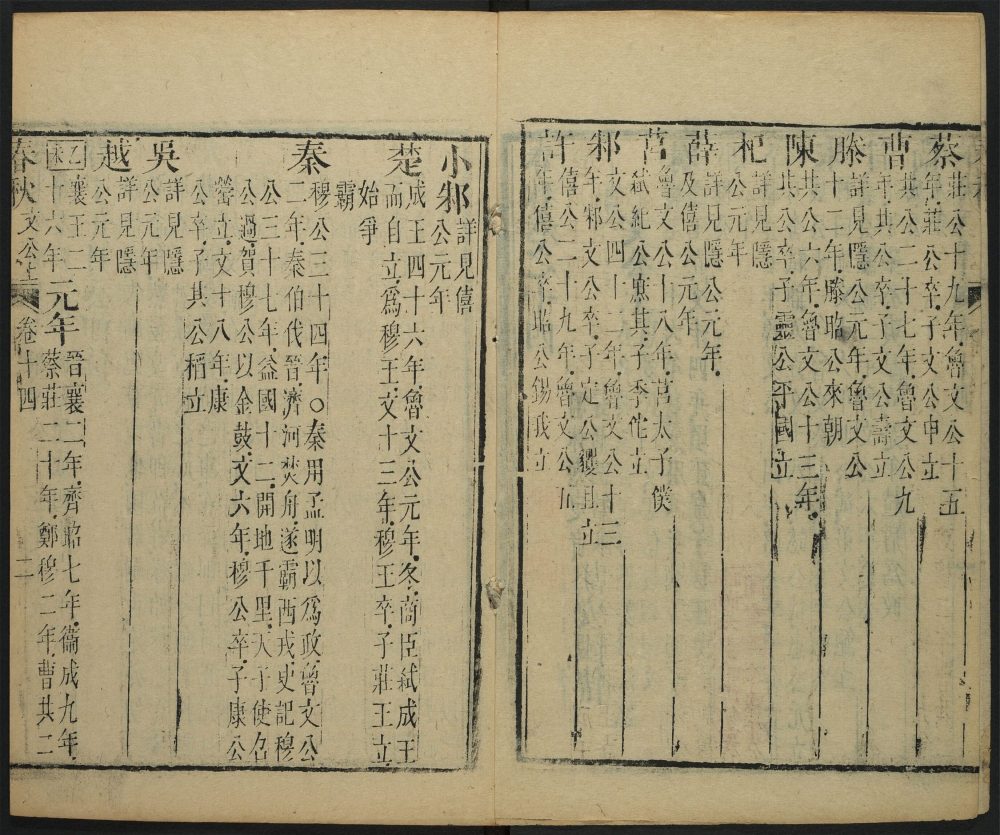 蔡莊公十九年魯文公十五
年莊公卒子文公申立
曹共公二十七年魯文公九
年共公卒子文公壽立
滕詳見隱公元年魯文公
十二年滕昭公來朝
陳共公六年魯文公十三年
共公卒子靈公平國立
杞詳見隱
公元年
薛詳見隱公元年
及僖公元年
莒魯文公十八年莒太子僕
弒紀公庶其子季佗立
邾文公四十二年魯文公十三
年邾文公卒子定公貜且立
許僖公二十九年魯文公五
年僖公卒昭公錫我立
小邾詳見僖
公元年
楚成王四十六年魯文公元年冬商臣弒成王
而自立爲穆王文十三年穆王卒子莊王立
始爭
霸
秦穆公三十四年○秦用孟明以爲政魯文公
二年秦伯伐晉濟河焚舟遂霸西戎史記穆
公三十七年益國十二開地千里天子使召
公過賀穆公以金鼓文六年穆公卒子康公
罃立文十八年康
公卒子共公稻立
吳詳見隱
公元年
越詳見隱
公元年
乙未襄王二
十六年
元年晉襄二年齊昭七年衞成九年
蔡莊二十年鄭穆二年曹共二
春秋 文公 卷十四 二